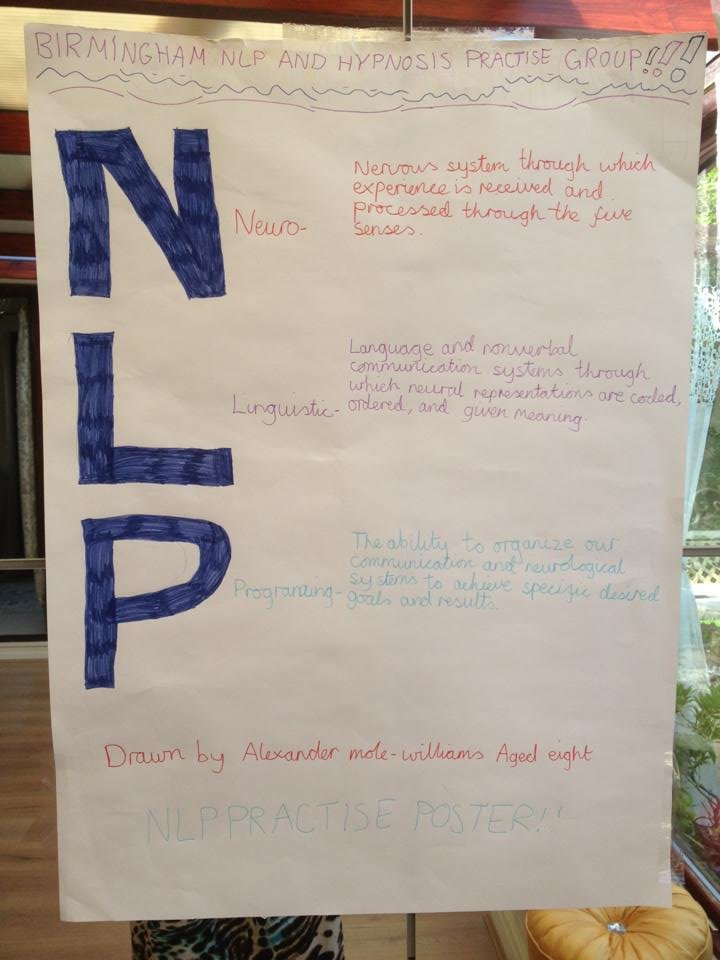 BIRMINGHAM NLP AND HYPNOSIS PRACTISE GROUP!!!
N
Neuro-
Nervous system through which
experience is received and
processed through the five
senses.
L
Linguistic-
Language and nonverbal
communication systems through
which neural representations are coded,
ordered, and given meaning.
P
Programing-
The ability to organize our
communication and neurological
systems to achieve specific desired
goals and results.
Drawn by Alexander mole-williams Aged eight
NLP PRACTISE POSTER!!